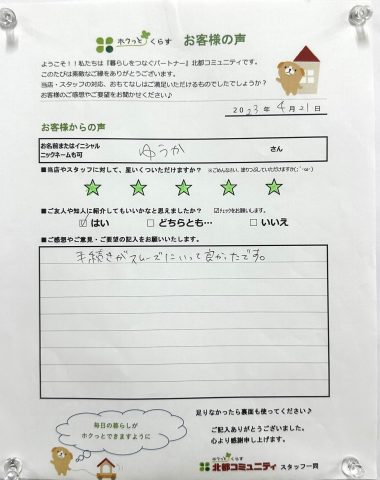 ホクっと くらす お客様の声
ようこそ!!私たちは『暮らしをつなぐパートナー』北部コミュニティです。
このたびは素敵なご縁をありがとうございます。
当店・スタッフの対応、おもてなしはご満足いただけるものでしたでしょうか?
お客様のご感想やご要望をお聞かせください♪
2023年 4月21日
お客様からの声
お名前またはイニシャル
ニックネームも可
ゆうか さん
■当店やスタッフに対して、星いくついただけますか?
■ご友人や知人に紹介してもいいかなと思えましたか? ☑チェックをお願いします。
☑はい □どちらとも… □いいえ
■ご感想やご意見・ご要望の記入をお願いいたします。
手続きがスムーズにいって良かったです。
足りなかったら裏面も使ってください♪
毎日の暮らしが
ホクっとできますように
ご記入ありがとうございました。
心より感謝申し上げます。
ホクっと くらす
北部コミュニティ スタッフ一同